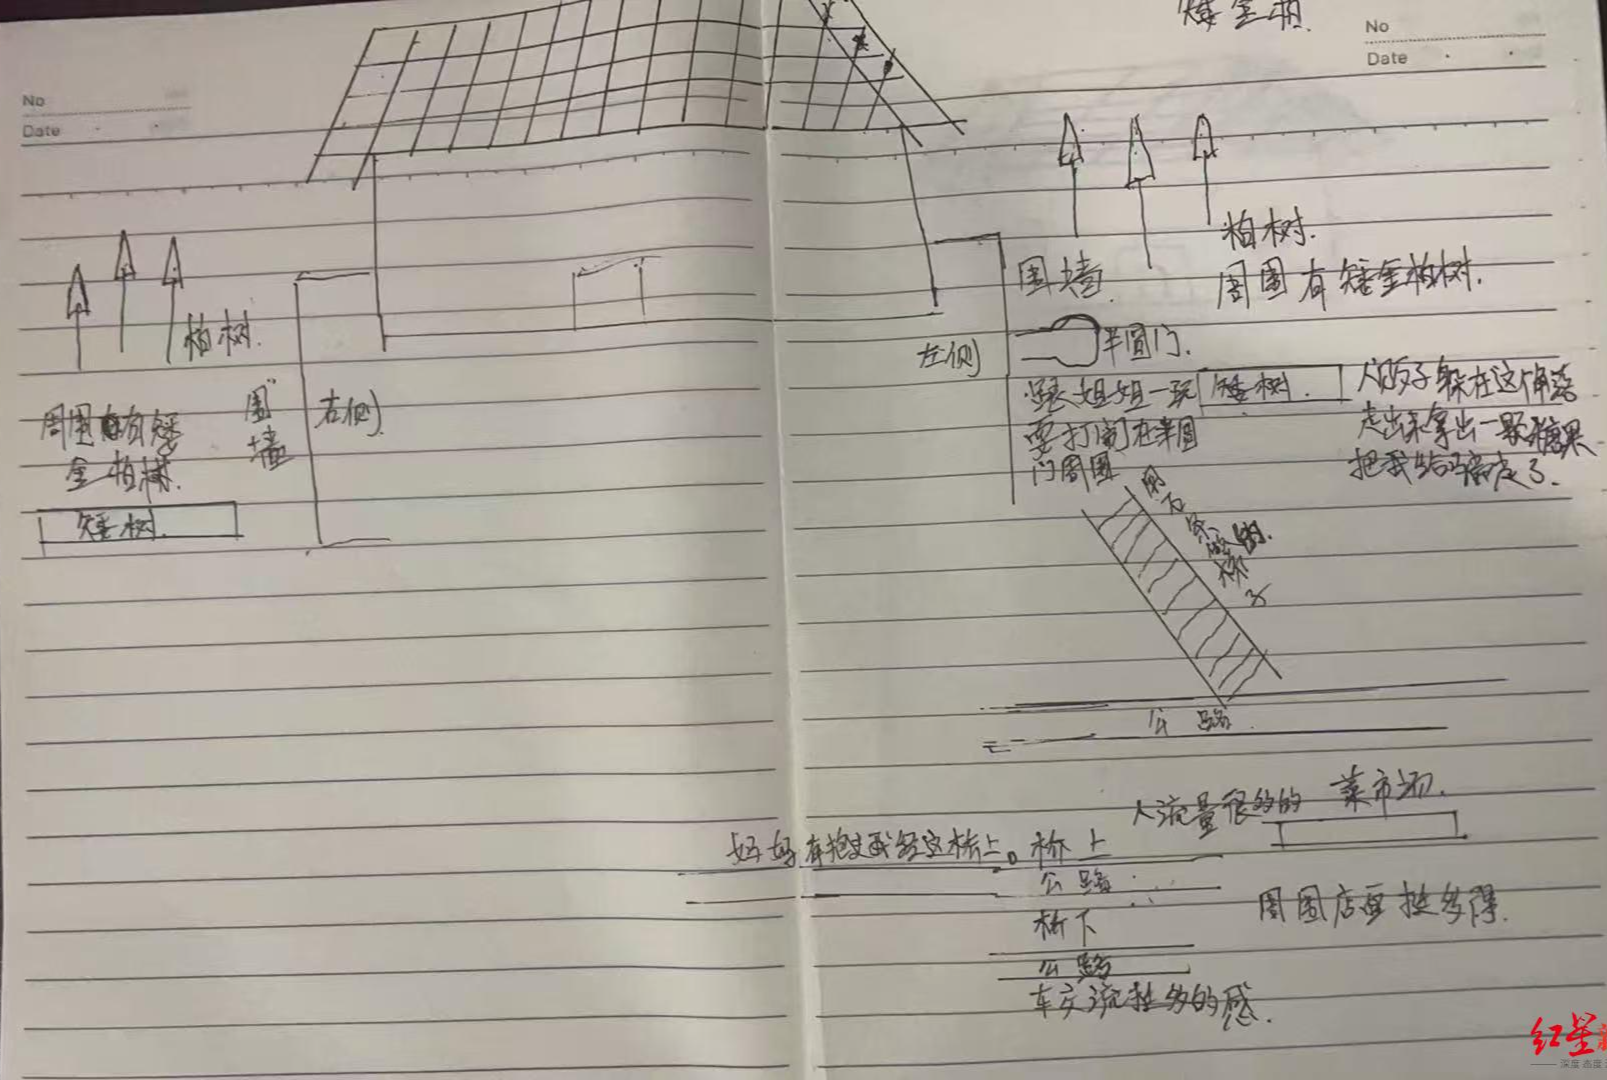 No
Date
柏树.
周围有矮
金柏树.
矮树.
围墙
右侧
矮金柏
No
Date
柏树.
周围有矮金柏树.
围墙
左侧
半圆门.
跟表姐姐一玩
耍打闹在半圆
门周围
矮树.
人贩子躲在这个角落
走出来拿出一颗糖果
把我给骗走了.
公路.
人流量很多的 菜市场.
妈妈有抱过我经过桥上。桥上
公路
桥下
公路
车交流挺多的感.
周围店面挺多得.
红星
深度 态度